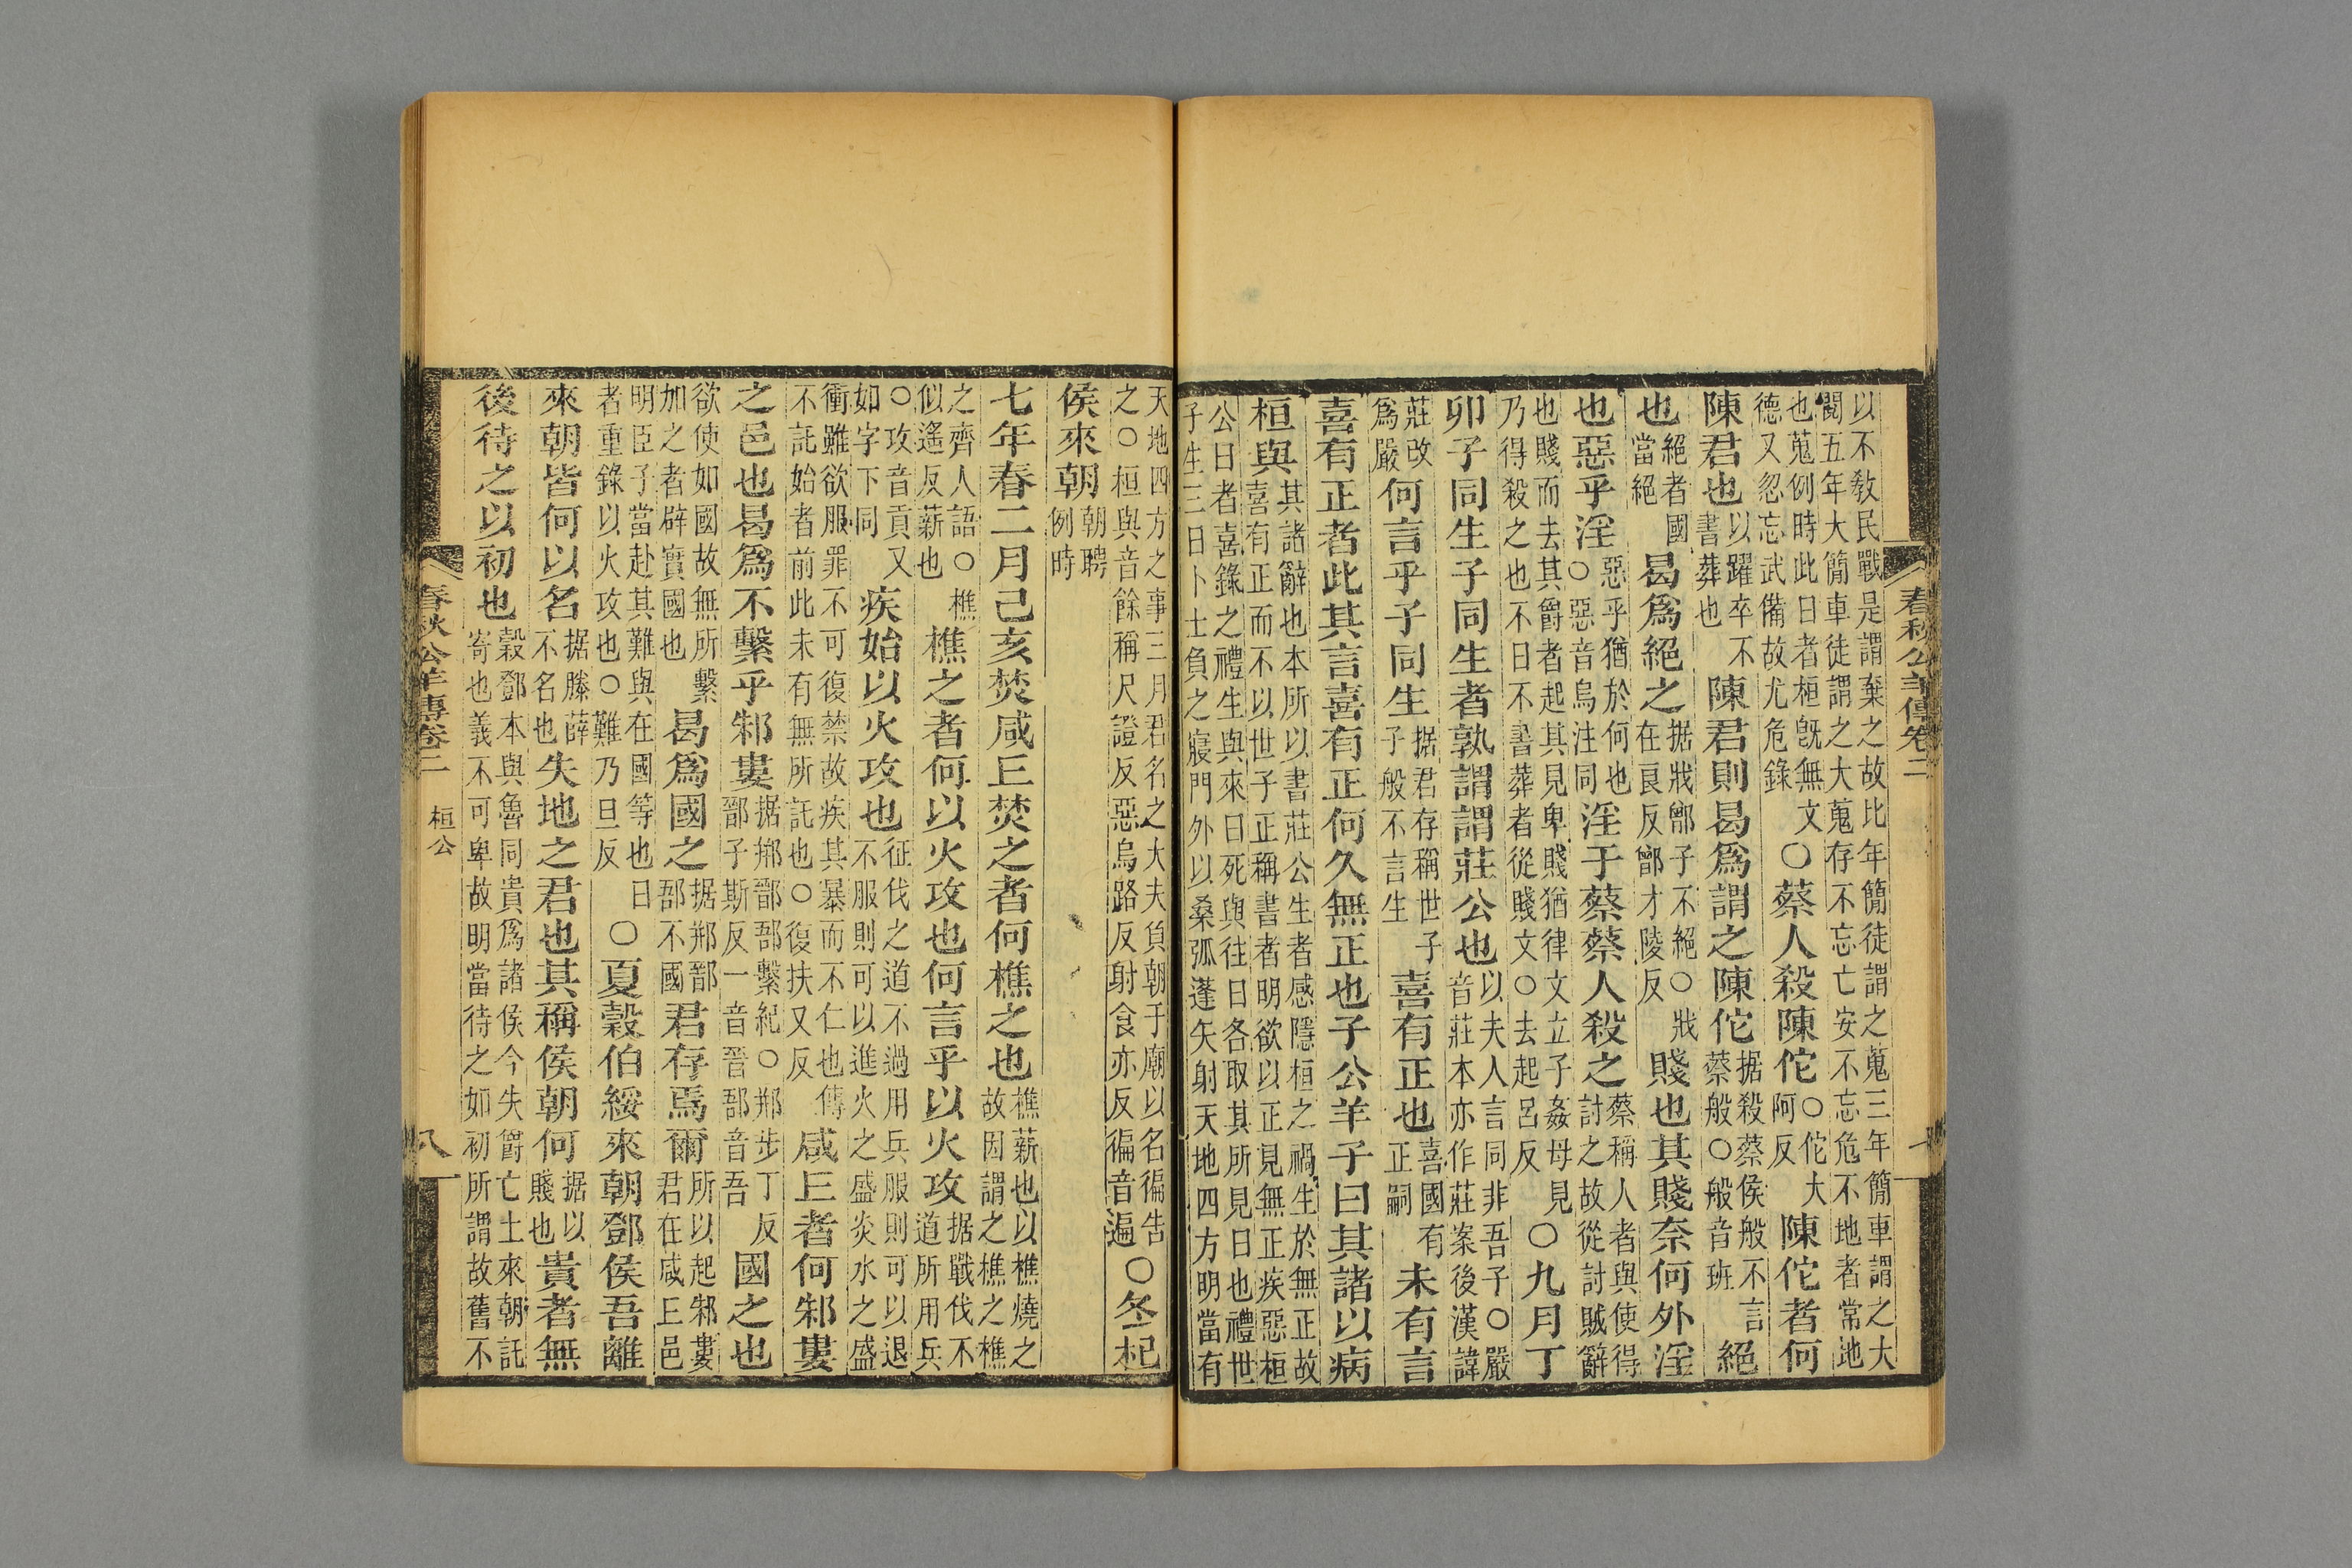 以不敎民戰是謂棄之故比年簡徒謂之蒐三年簡車謂之大
閱五年大簡車徒謂之大蒐存不忘亡安不忘危不地者常地
也蒐例時此日者桓旣無文
德又忽忘武備故尤危錄
○蔡人殺陳佗○佗大阿反陳佗者何
陳君也以躍卒不書葬也陳君則曷爲謂之陳佗据殺蔡侯般不言蔡般○般音班絕
也絕者國當絕曷爲絕之据戕鄫子不絕○戕在良反鄫才陵反賤也其賤奈何外淫
也惡乎淫惡乎猶於何也○惡音烏注同淫于蔡蔡人殺之蔡稱人者與使得討之故從討賊辭
也賤而去其爵者起其見卑賤猶律文立子姦母見
乃得殺之也不日不書葬者從賤文○去起呂反
○九月丁
卯子同生子同生者孰謂謂莊公也以夫人言同非吾子○嚴音莊本亦作莊案後漢諱
莊改爲嚴何言乎子同生据君存稱世子子般不言生喜有正也喜國有正嗣未有言
喜有正者此其言喜有正何久無正也子公羊子曰其諸以病
桓與其諸辭也本所以書莊公生者感隱桓之禍生於無正故
喜有正而不以世子正稱書者明欲以正見無正疾惡桓
公日者喜錄之禮生與來日死與往日各取其所見日也禮世
子生三日卜士負之寢門外以桑弧蓬矢射天地四方明當有
春秋公羊傳卷二
天地四方之事三月君名之大夫負朝于廟以名徧告
之○桓與音餘稱尺證反惡烏路反射食亦反徧音遍
○冬杞
侯來朝朝聘例時
七年春二月己亥焚咸丘焚之者何樵之也樵薪也以樵燒之故因謂之樵之樵
之齊人語○樵似遙反薪也樵之者何以火攻也何言乎以火攻据戰伐不道所用兵
○攻音貢又如字下同疾始以火攻也征伐之道不過用兵服則可以退不服則可以進火之盛炎水之盛
衝雖欲服罪不可復禁故疾其暴而不仁也傳
不託始者前此未有無所託也○復扶又反
咸丘者何邾婁
之邑也曷爲不繫乎邾婁据郱鄑郚繫紀○郱步丁反鄑子斯反一音晉郚音吾國之也
欲使如國故無所繫加之者辟實國也曷爲國之据郱鄑郚不國君存焉爾所以起邾婁君在咸丘邑
明臣子當赴其難與在國等也日
者重錄以火攻也○難乃旦反
○夏穀伯綏來朝鄧侯吾離
來朝皆何以名据滕薛不名也失地之君也其稱侯朝何据以賤也貴者無
後待之以初也穀鄧本與魯同貴爲諸侯今失爵亡土來朝託寄也義不可卑故明當待之如初所謂故舊不
春秋公羊傳卷二
桓公
八